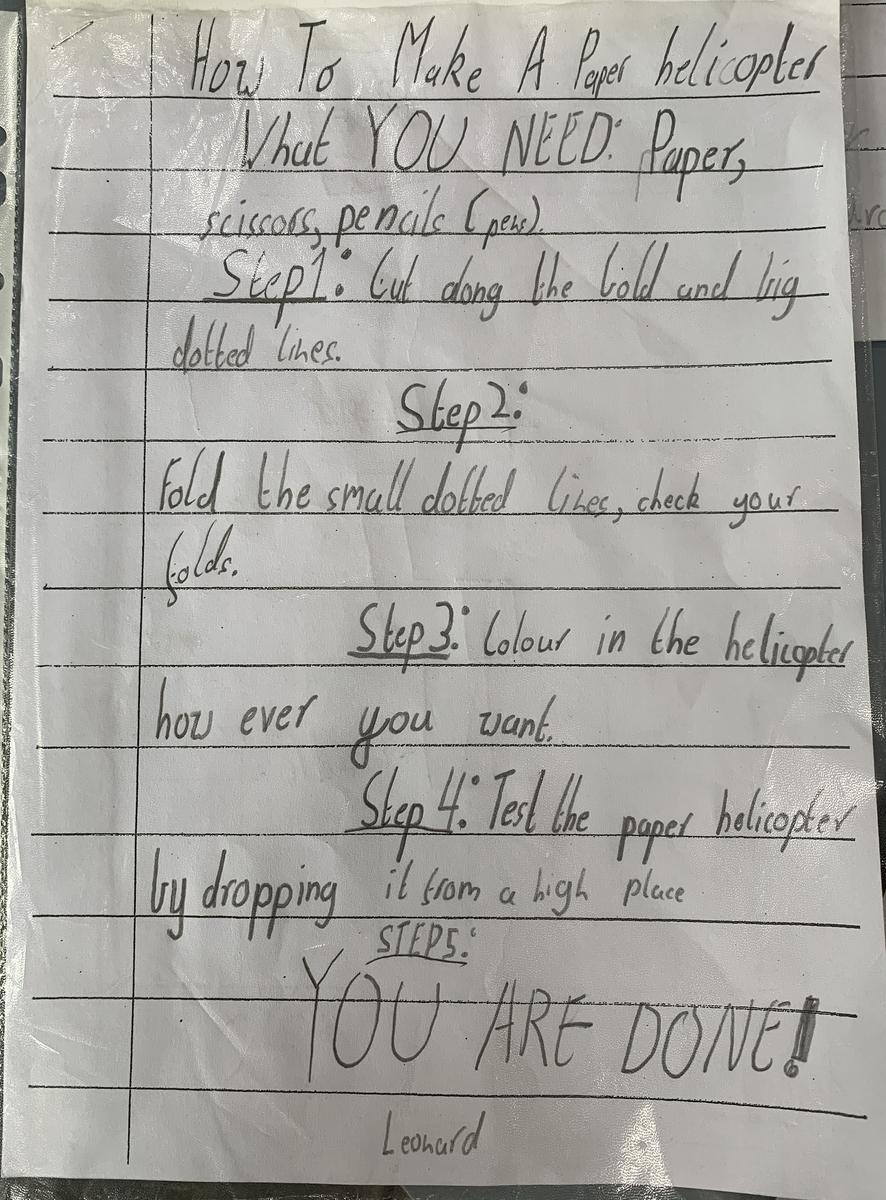 How To Make A Paper helicopter
What YOU NEED: Paper,
scissors, pencils (pens).
Step1: Cut along the bold and big
dotted lines.
Step2:
Fold the small dotted lines, check your
folds.
Step3: Colour in the helicopter
how ever you want.
Step 4: Test the paper helicopter
by dropping it from a high place
STEP5:
YOU ARE DONE!
Leonard